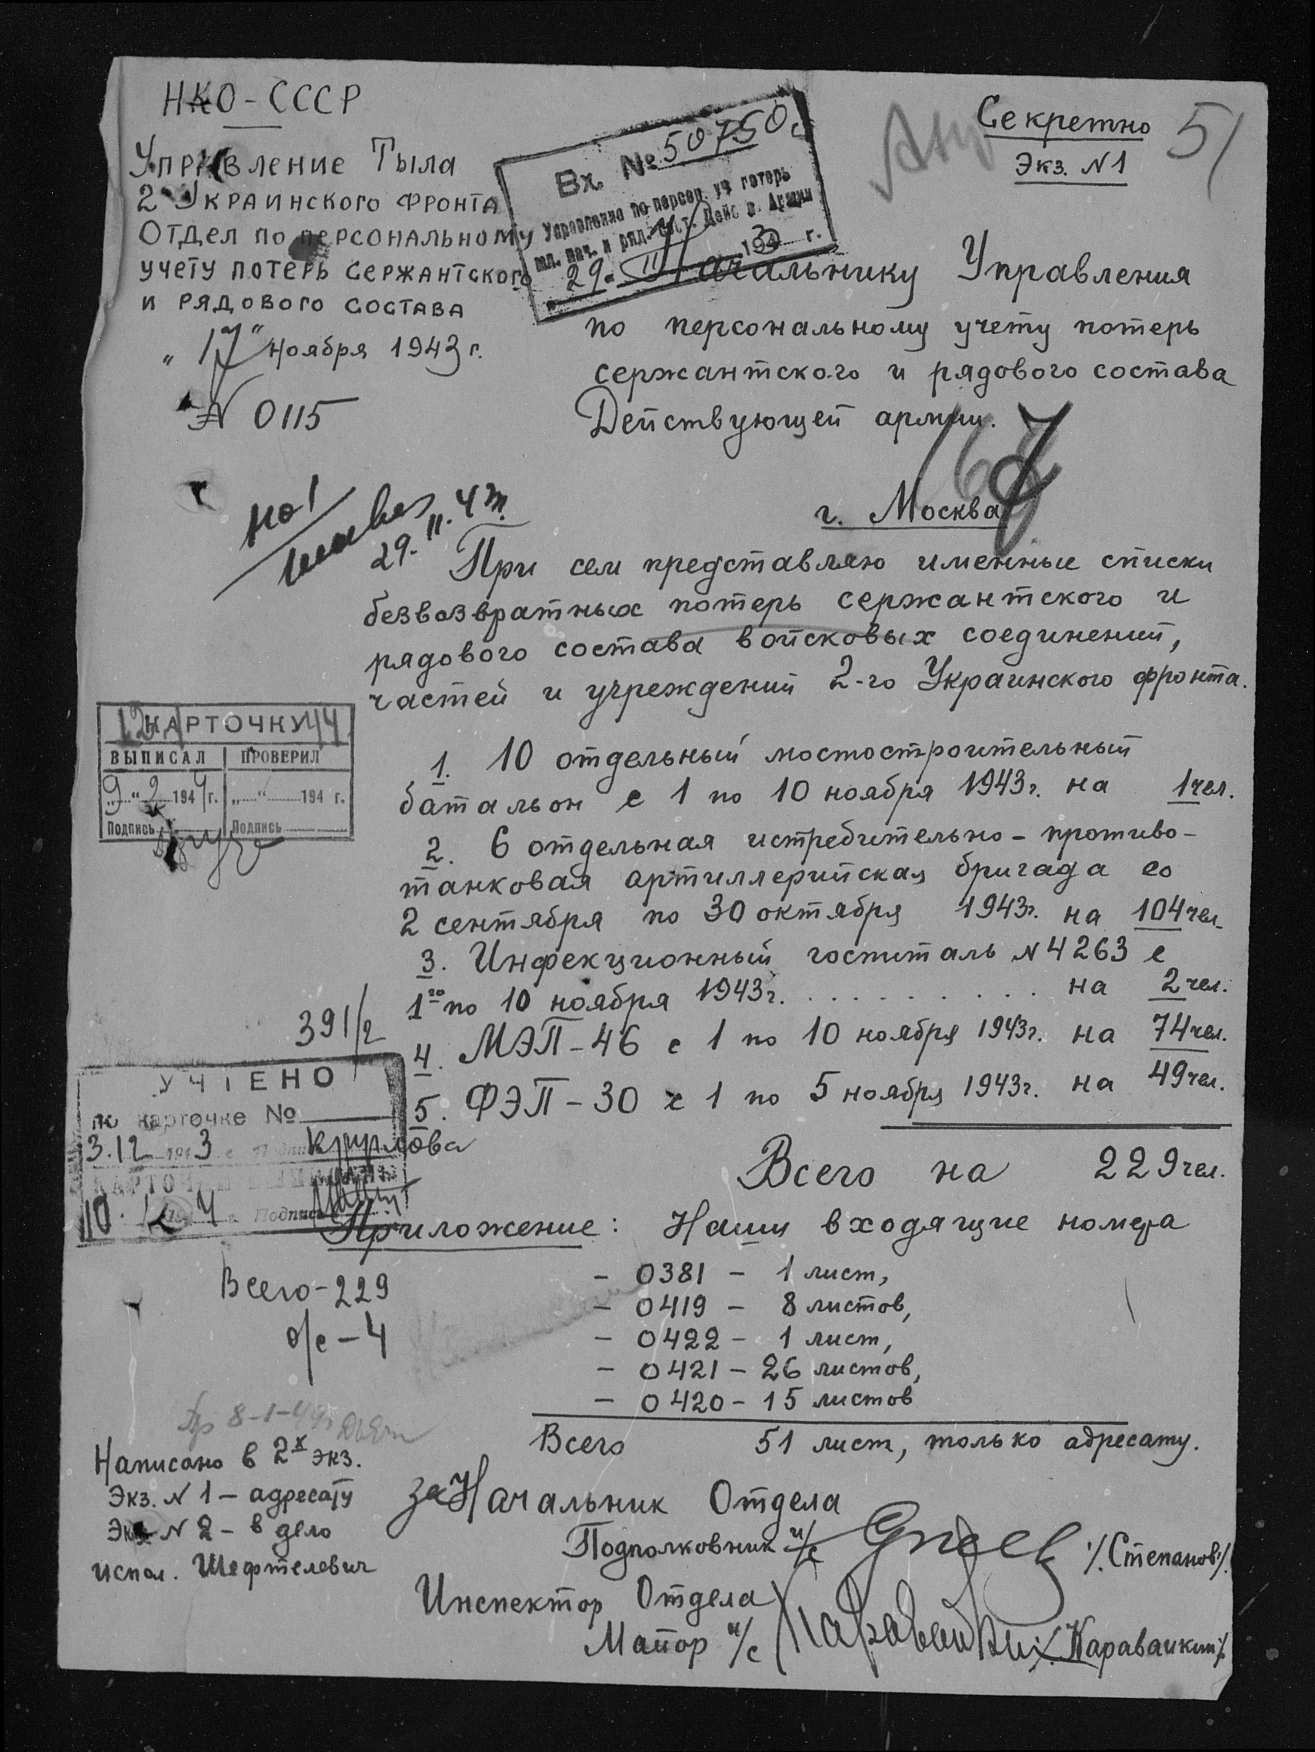 НКО - СССР
Управление Тыла
2 Украинского фронта
Отдел по персональному
учету потерь сержантского
и рядового состава
„17" ноября 1943 г.
N 0115
Вх. № 50750с
Управление по персон. уч. потерь
мл. нач. и ряд. сост. Дейс в. Армии
29. 11 1943 г.
Секретно
Экз. N 1
51
Начальнику Управления
по персональному учету потерь
сержантского и рядового состава
Действующей армии.
г. Москва
29. 11. 43г.
При сем представляю именные списки
безвозвратных потерь сержантского и
рядового состава войсковых соединений,
частей и учреждений 2-го Украинского фронта.
1. 10 отдельный мостостроительный
батальон с 1 по 10 ноября 1943г. на 1чел.
2. 6 отдельная истребительно-противо-
танковая артиллерийская бригада со
2 сентября по 30 октября 1943г. на 104чел.
3. Инфекционный госпиталь N 4263 с
1го по 10 ноября 1943г. . . . . . . . . . . на 2чел.
4. МЭП-46 с 1 по 10 ноября 1943г. на 74чел.
5. ФЭП-30 с 1 по 5 ноября 1943г. на 49чел.
Всего на 229чел.
Приложение: Наши входящие номера
- 0381 - 1 лист,
- 0419 - 8 листов,
- 0422 - 1 лист,
- 0421 - 26 листов,
- 0420 - 15 листов
Всего 51 лист, только адресату.
за Начальник Отдела
Подполковник и/с /.Степанов./
Инспектор Отдела
Майор и/с Каравайкин /.Каравайкин./
КАРТОЧКУ
ВЫПИСАЛ ПРОВЕРИЛ
„9" 2 1944г. „ " 194 г.
Подпись Подпись
391/г
УЧТЕНО
по карточке №
3.12 1943 г. Подпись
Подпись
Всего-229
о/с-4
8-1-44г
Написано в 2х экз.
Экз. N 1 - адресату
Экз N 2 - в дело
испол. Шефтелевич